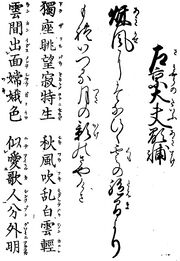 左京大夫顕輔
穐風にたなびく雲の絶間より
もれいづる月の影のさやけさ
獨座眺望寂特生　秋風吹乱白雲輕
雲間出面嫦娥色　似愛歌人分外明